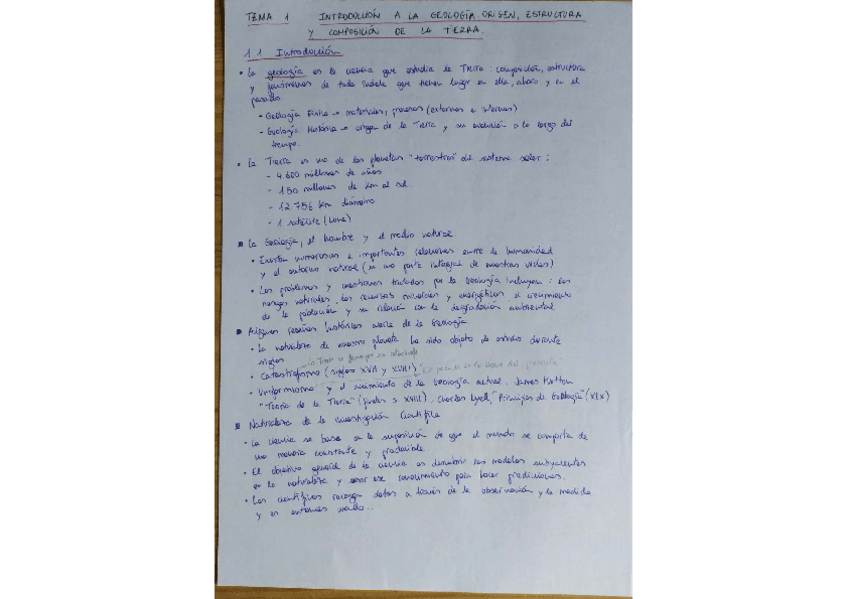 TEMA 1 INTRODUCCIÓN A LA GEOLOGÍA ORIGEN, ESTRUCTURA
Y COMPOSICIÓN DE LA TIERRA.
1.1 Introducción
• La geología es la ciencia que estudia la Tierra: composición, estructura
y fenómenos de toda índole que tienen lugar en ella, ahora y en el
pasado.
- Geología Física → materiales, procesos (externos e internos)
- Geología Histórica → origen de la Tierra y su evolución a lo largo del
tiempo.
• La Tierra es uno de los planetas "terrestres" del sistema solar:
- 4.600 millones de años
- 150 millones de km al sol.
- 12 756 km diámetro
- 1 satélite (Luna)
■ La Geología, el hombre y el medio natural
• Existen numerosas e importantes relaciones entre la humanidad
y el entorno natural (es una parte integral de nuestras vidas)
• Los problemas y cuestiones tratados por la Geología incluyen: los
riesgos naturales, los recursos minerales y energéticos, el crecimiento
de la población y su relación con la degradación ambiental.
■ Algunas reseñas históricas acerca de la Geología.
• La naturaleza de nuestro planeta ha sido objeto de estudio durante
siglos
La Tierra se formó por
• Catastrofismo (siglos XVII y XVIII) "El presente es la clave del"
• Uniformismo y el nacimiento de la Geología actual. James Hutton
"Teoría de la Tierra" (finales s XVIII). Charles Lyell, "Principios de Geología" (XIX)
■ Naturaleza de la investigación Científica
• La ciencia se basa en la suposición de que el mundo se comporta de
una manera constante y predecible.
• El objetivo general de la ciencia es descubrir los modelos subyacentes
en la naturaleza y usar ese conocimiento para hacer predicciones.
• Los científicos recogen datos a través de la observación y la medida
y en entonces cuando...